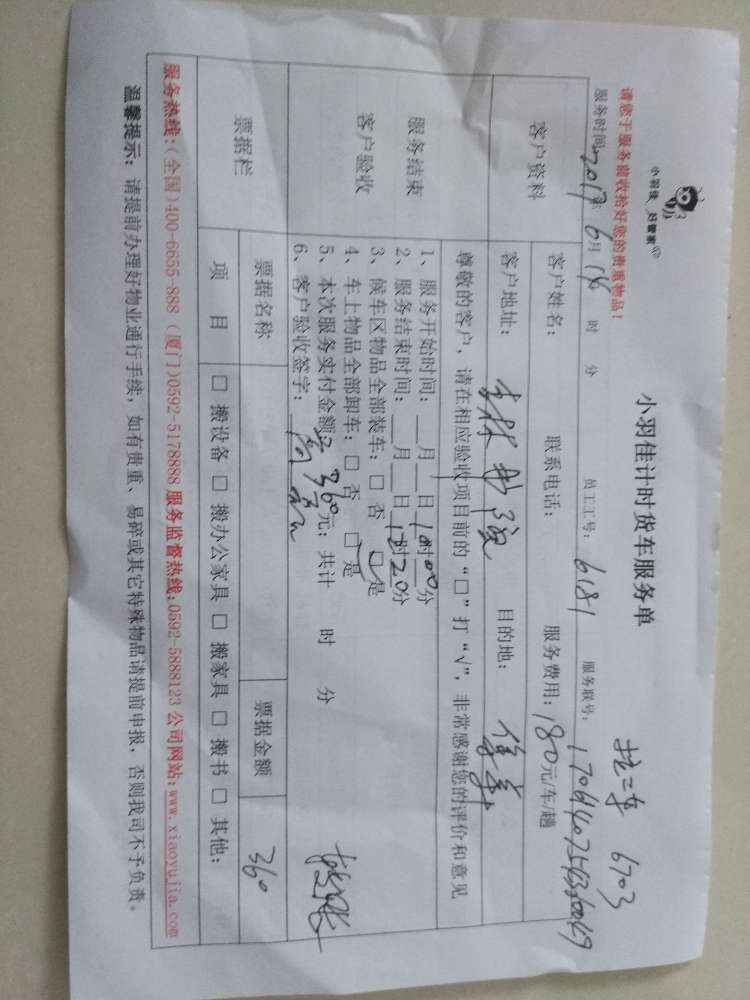 小羽佳 好管家
小羽佳计时货车服务单
请您于服务前收拾好您的贵重物品！
服务时间: 2017年 6月 14 时 分 员工工号: 6181 服务联号:
客户资料
客户姓名: 联系电话: 服务费用: 180元/车/趟
客户地址: 目的地:
尊敬的客户，请在相应验收项目前的“□”打“√”，非常感谢您的评价和意见
服务结束
客户验收
1、服务开始时间: __月__日 时00分
2、服务结束时间: __月__日 时20分
3、候车区物品全部装车: □ 否 □ 是
4、车上物品全部卸车: □ 否 □ 是
5、本次服务实付金额 360元; 共计 时 分
6、客户验收签字:
票据栏
票据名称 票据金额 360
项 目 □ 搬设备 □ 搬办公家具 □ 搬家具 □ 搬书 □ 其他:
服务热线:(全国)400-6655-888 (厦门)0592-5178888 服务监督热线:0592-5888123 公司网站:www.xiaoyujia.com
温馨提示: 请提前办理好物业通行手续，如有贵重、易碎或其它特殊物品请提前申报，否则我司不予负责。